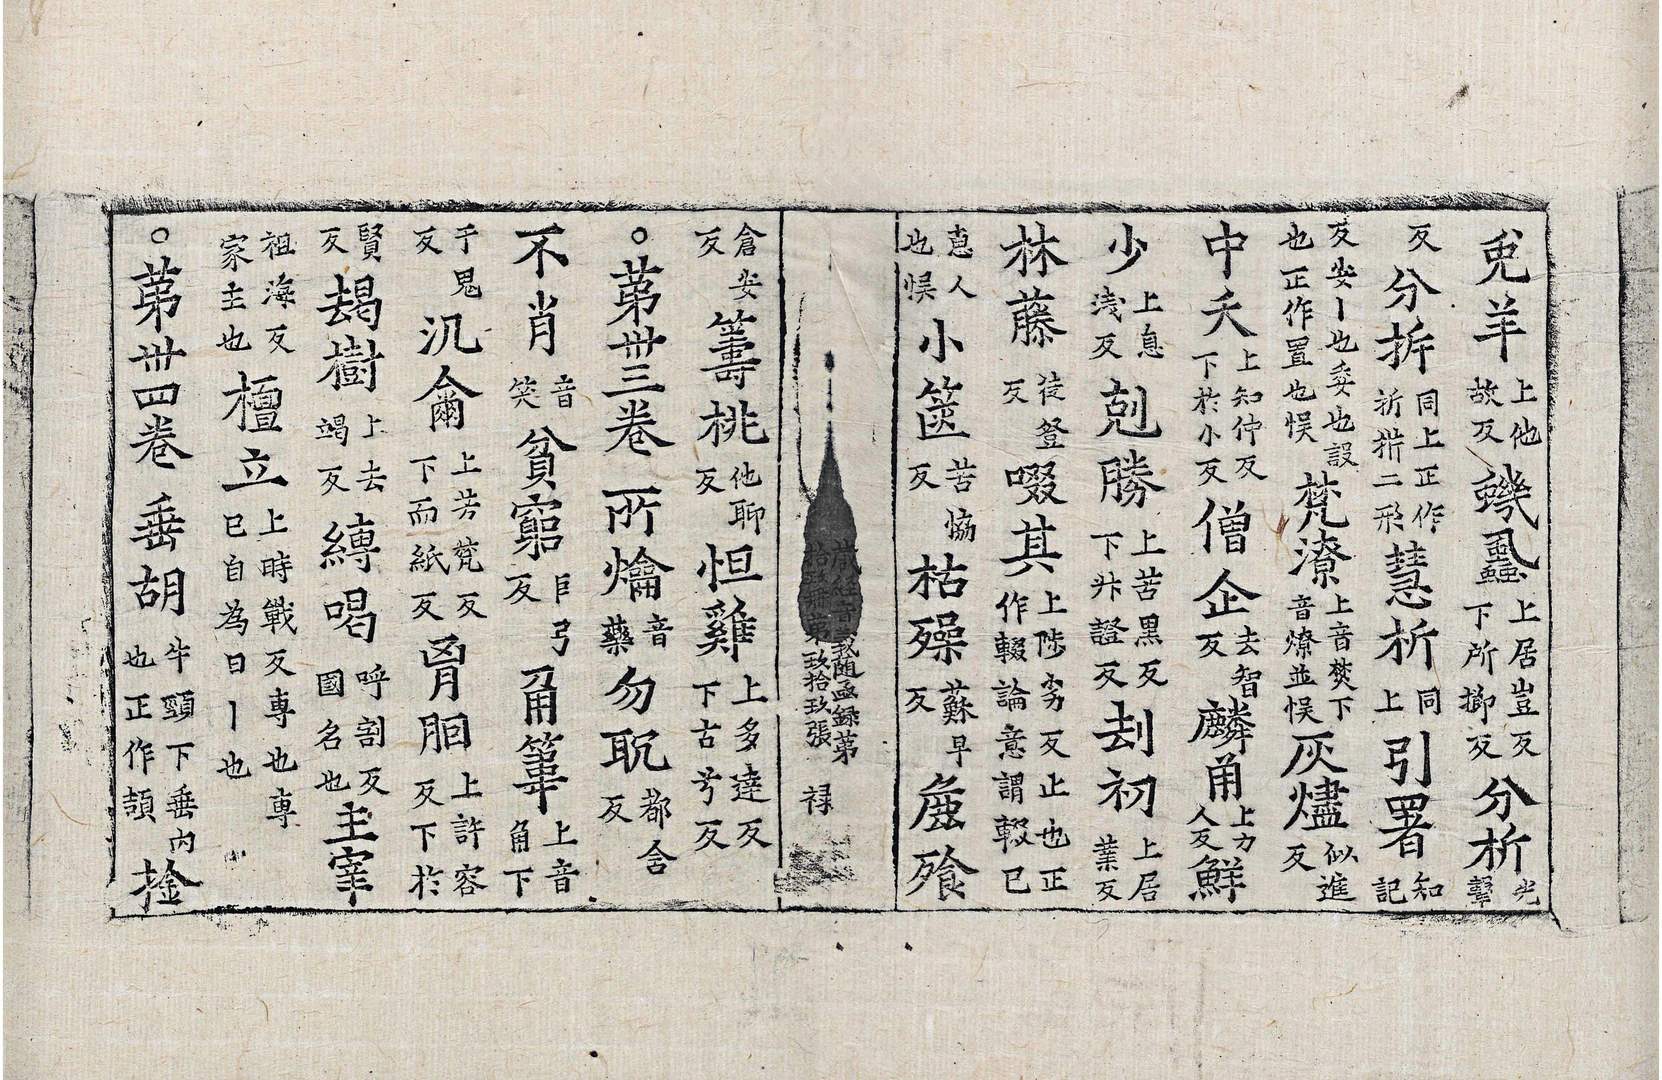 兎羊上他故反蟣虱上居豈反下所擳反分析光擊
反分拆同上正作析㭊二形慧析同上引署知記
反安丨也委也設也正作置也悮梵潦上音焚下音燎並悮灰燼似進反
中夭上知仲反下於小反僧企去智反麟甬上力人反鮮
少上息淺反剋勝上苦黑反下升證反刦初上居業反
林藤徒登反啜其上陟劣反止也正作輟論意謂輟已
恴人也悮小篋苦協反枯殦蘇早反麁飱
藏經音義隨函録第拾肆冊第玖拾玖張 禄
倉安反籌桃他聊反怛雞上多達反下古兮反
○第卅三卷所爚音藥勿耽都含反
不肖音笑貧窮巨弓反甬篳上音角下
于鬼反汎尒上芳梵反下而紙反胷胭上許容反下於
賢反朅樹上去竭反縛喝呼割反國名也主宰
祖海反家主也檀立上時戰反專也專巳自為曰丨也
○第卅四卷垂胡牛頸下垂肉也正作頡捦